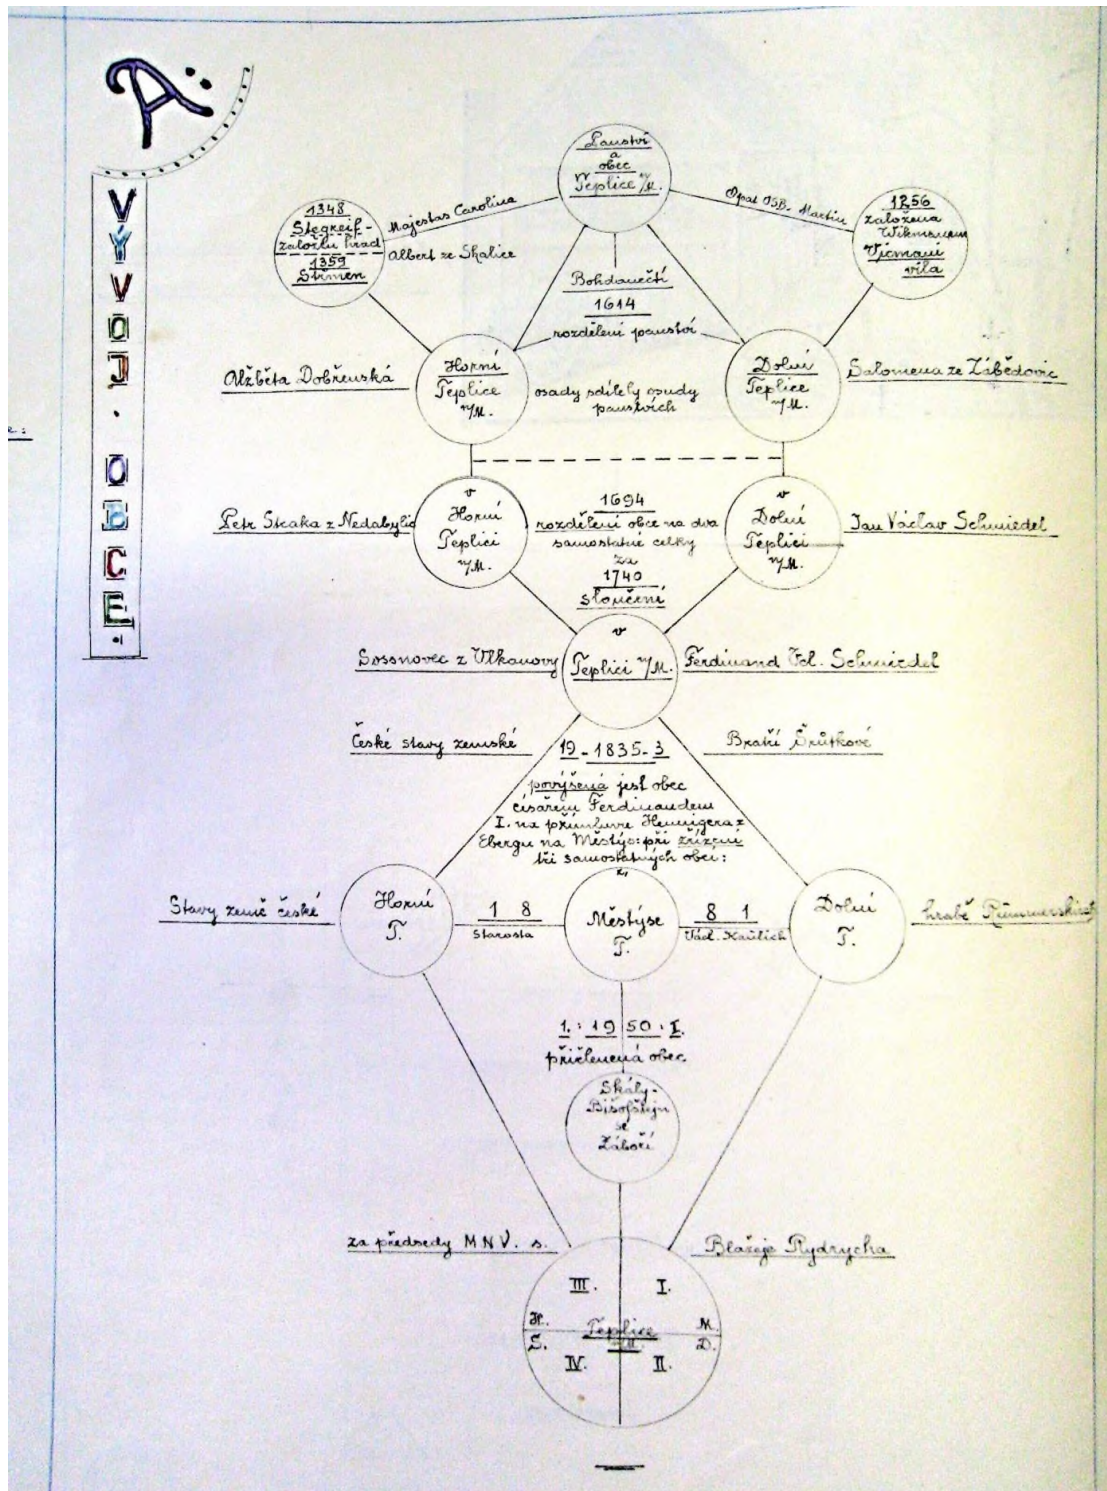 A:
VÝVOJ. OBCE.
Panství
a
obec
Teplice n/M.
1348
Stegreif-
založila hrad
1359
Střmen
Majestas Carolina
Albert ze Skalice
Opat OSB. Martin
1256
založena
Wikmanem
Vicmani
villa
Bohdanečtí
1614
rozdělení panství
Alžběta Dobřenská
Horní
Teplice
n/M.
osady sdílely osudy
panstvích
Dolní
Teplice
n/M.
Salomena ze Zábědovic
Petr Straka z Nedabylic
v
Horní
Teplici
n/M.
1694
rozdělení obce na dva
samostatné celky
za
1740
sloučení
v
Dolní
Teplici
n/M.
Jan Václav Schmiedel
Sosnovec z Vlkanovy
v
Teplici n/M.
Ferdinand Vcl. Schmiedel
České stavy zemské
19-1835-3
Bratří Šrůtkové
povýšená jest obec
císařem Ferdinandem
I. na přímluvu Hennigera z
Ebergu na Městýs: při zřízení
tří samostatných obcí:
Stavy země české
Horní
T.
1 8
Starosta
Městýse
T.
8 1
Václ. Kaulich
Dolní
T.
hrabě
1.: 19 50. I.
přičlenená obec
Skály-
Bišofštejn
se
Záboří
za předsedy MNV. s.
Blažeje Rydrycha
III. I.
H. Teplice M.
S. n/M. D.
IV. II.